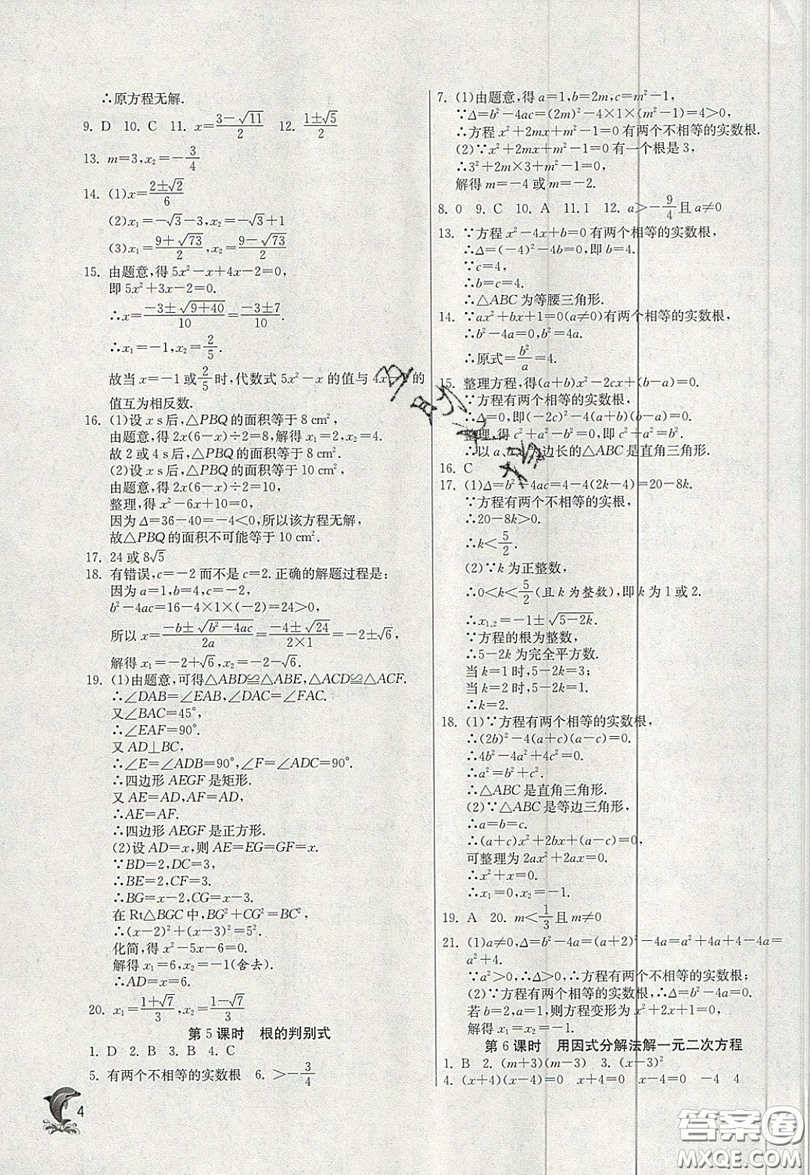 ∴原方程无解.
9. D 10. C 11. x=(3-√11)/2 12. (1±√5)/2
13. m=3,x₂=-3/4
14. (1)x=(2±√2)/6
(2)x₁=-√3-3,x₂=-√3+1
(3)x₁=(9+√73)/2,x₂=(9-√73)/2
15. 由题意,得 5x²-x+4x-2=0,
即 5x²+3x-2=0.
∴x=(-3±√(9+40))/10=(-3±7)/10.
∴x₁=-1,x₂=2/5.
故当 x=-1或2/5时,代数式 5x²-x 的值与 4x 的
值互为相反数.
16. (1)设 x s后,△PBQ 的面积等于 8 cm²,
由题意,得 2x(6-x)÷2=8,解得 x₁=2,x₂=4.
故 2 或 4 s后,△PBQ 的面积等于 8 cm².
(2)设 x s后,△PBQ 的面积等于 10 cm²,
由题意,得 2x(6-x)÷2=10,
整理,得 x²-6x+10=0,
因为 Δ=36-40=-4<0,所以该方程无解,
故△PBQ 的面积不可能等于 10 cm².
17. 24 或 8√5
18. 有错误,c=-2 而不是 c=2. 正确的解题过程是:
因为 a=1,b=4,c=-2,
b²-4ac=16-4×1×(-2)=24>0,
所以 x=(-b±√(b²-4ac))/2a=(-4±√24)/(2×1)=-2±√6,
解得 x₁=-2+√6,x₂=-2-√6.
19. (1)由题意,可得△ABD≌△ABE,△ACD≌△ACF.
∴∠DAB=∠EAB,∠DAC=∠FAC.
又∠BAC=45°,
∴∠EAF=90°.
又 AD⊥BC,
∴∠E=∠ADB=90°,∠F=∠ADC=90°.
∴四边形 AEGF 是矩形.
又 AE=AD,AF=AD,
∴AE=AF.
∴四边形 AEGF 是正方形.
(2)设 AD=x,则 AE=EG=GF=x.
∵BD=2,DC=3,
∴BE=2,CF=3.
∴BG=x-2,CG=x-3.
在 Rt△BGC 中,BG²+CG²=BC²,
∴(x-2)²+(x-3)²=5².
化简,得 x²-5x-6=0.
解得 x₁=6,x₂=-1(舍去).
∴AD=x=6.
20. x₁=(1+√7)/3,x₂=(1-√7)/3
第 5 课时 根的判别式
1. D 2. B 3. B 4. B
5. 有两个不相等的实数根 6. >-3/4
4
7. (1)由题意,得 a=1,b=2m,c=m²-1,
∵Δ=b²-4ac=(2m)²-4×1×(m²-1)=4>0,
∴方程 x²+2mx+m²-1=0 有两个不相等的实数根.
(2)∵x²+2mx+m²-1=0 有一个根是 3,
∴3²+2m×3+m²-1=0,
解得 m=-4 或 m=-2.
8. 0 9. C 10. A 11. 1 12. a>-9/4且 a≠0
13. ∵方程 x²-4x+b=0 有两个相等的实数根,
∴Δ=(-4)²-4b=0,即 b=4.
∵c=4,
∴b=c=4.
∴△ABC 为等腰三角形.
14. ∵ax²+bx+1=0(a≠0)有两个相等的实数根,
∴b²-4a=0,b²=4a.
∴原式=b²/a=4.
15. 整理方程,得(a+b)x²-2cx+(b-a)=0.
∵方程有两个相等的实数根,
∴Δ=0,即(-2c)²-4(a+b)(b-a)=0.
整理,得 c²+a²-b²=0,即 c²+a²=b².
∴以 a 边长的△ABC 是直角三角形.
16. C
17. (1)Δ=b²-4ac=4-4(2k-4)=20-8k.
∵方程有两个不相等的实根,
∴20-8k>0,
∴k<5/2.
(2)∵k 为正整数,
∴0<k<5/2(且 k 为整数),即 k 为 1 或 2.
∴x₁,₂=-1±√(5-2k).
∵方程的根为整数,
∴5-2k 为完全平方数.
当 k=1 时,5-2k=3;
当 k=2 时,5-2k=1.
∴k=2.
18. (1)∵方程有两个相等的实数根,
∴(2b)²-4(a+c)(a-c)=0.
∴4b²-4a²+4c²=0.
∴a²=b²+c².
∴△ABC 是直角三角形.
(2)∵△ABC 是等边三角形,
∴a=b=c.
∴(a+c)x²+2bx+(a-c)=0,
可整理为 2ax²+2ax=0.
∴x²+x=0.
∴x₁=0,x₂=-1.
19. A 20. m<1/3且 m≠0
21. (1)a≠0,Δ=b²-4a=(a+2)²-4a=a²+4a+4-4a=
a²+4.
∵a²>0,∴Δ>0,∴方程有两个不相等的实数根;
(2)∵方程有两个相等的实数根,∴Δ=b²-4a=0,
若 b=2,a=1,则方程变形为 x²+2x+1=0,
解得 x₁=x₂=-1.
第 6 课时 用因式分解法解一元二次方程
1. B 2. (m+3)(m-3) 3. (x-3)²
4. (x+4)(x-4)=0 x+4=0 x-4=0 -4 4
答案卷
MXQE.COM